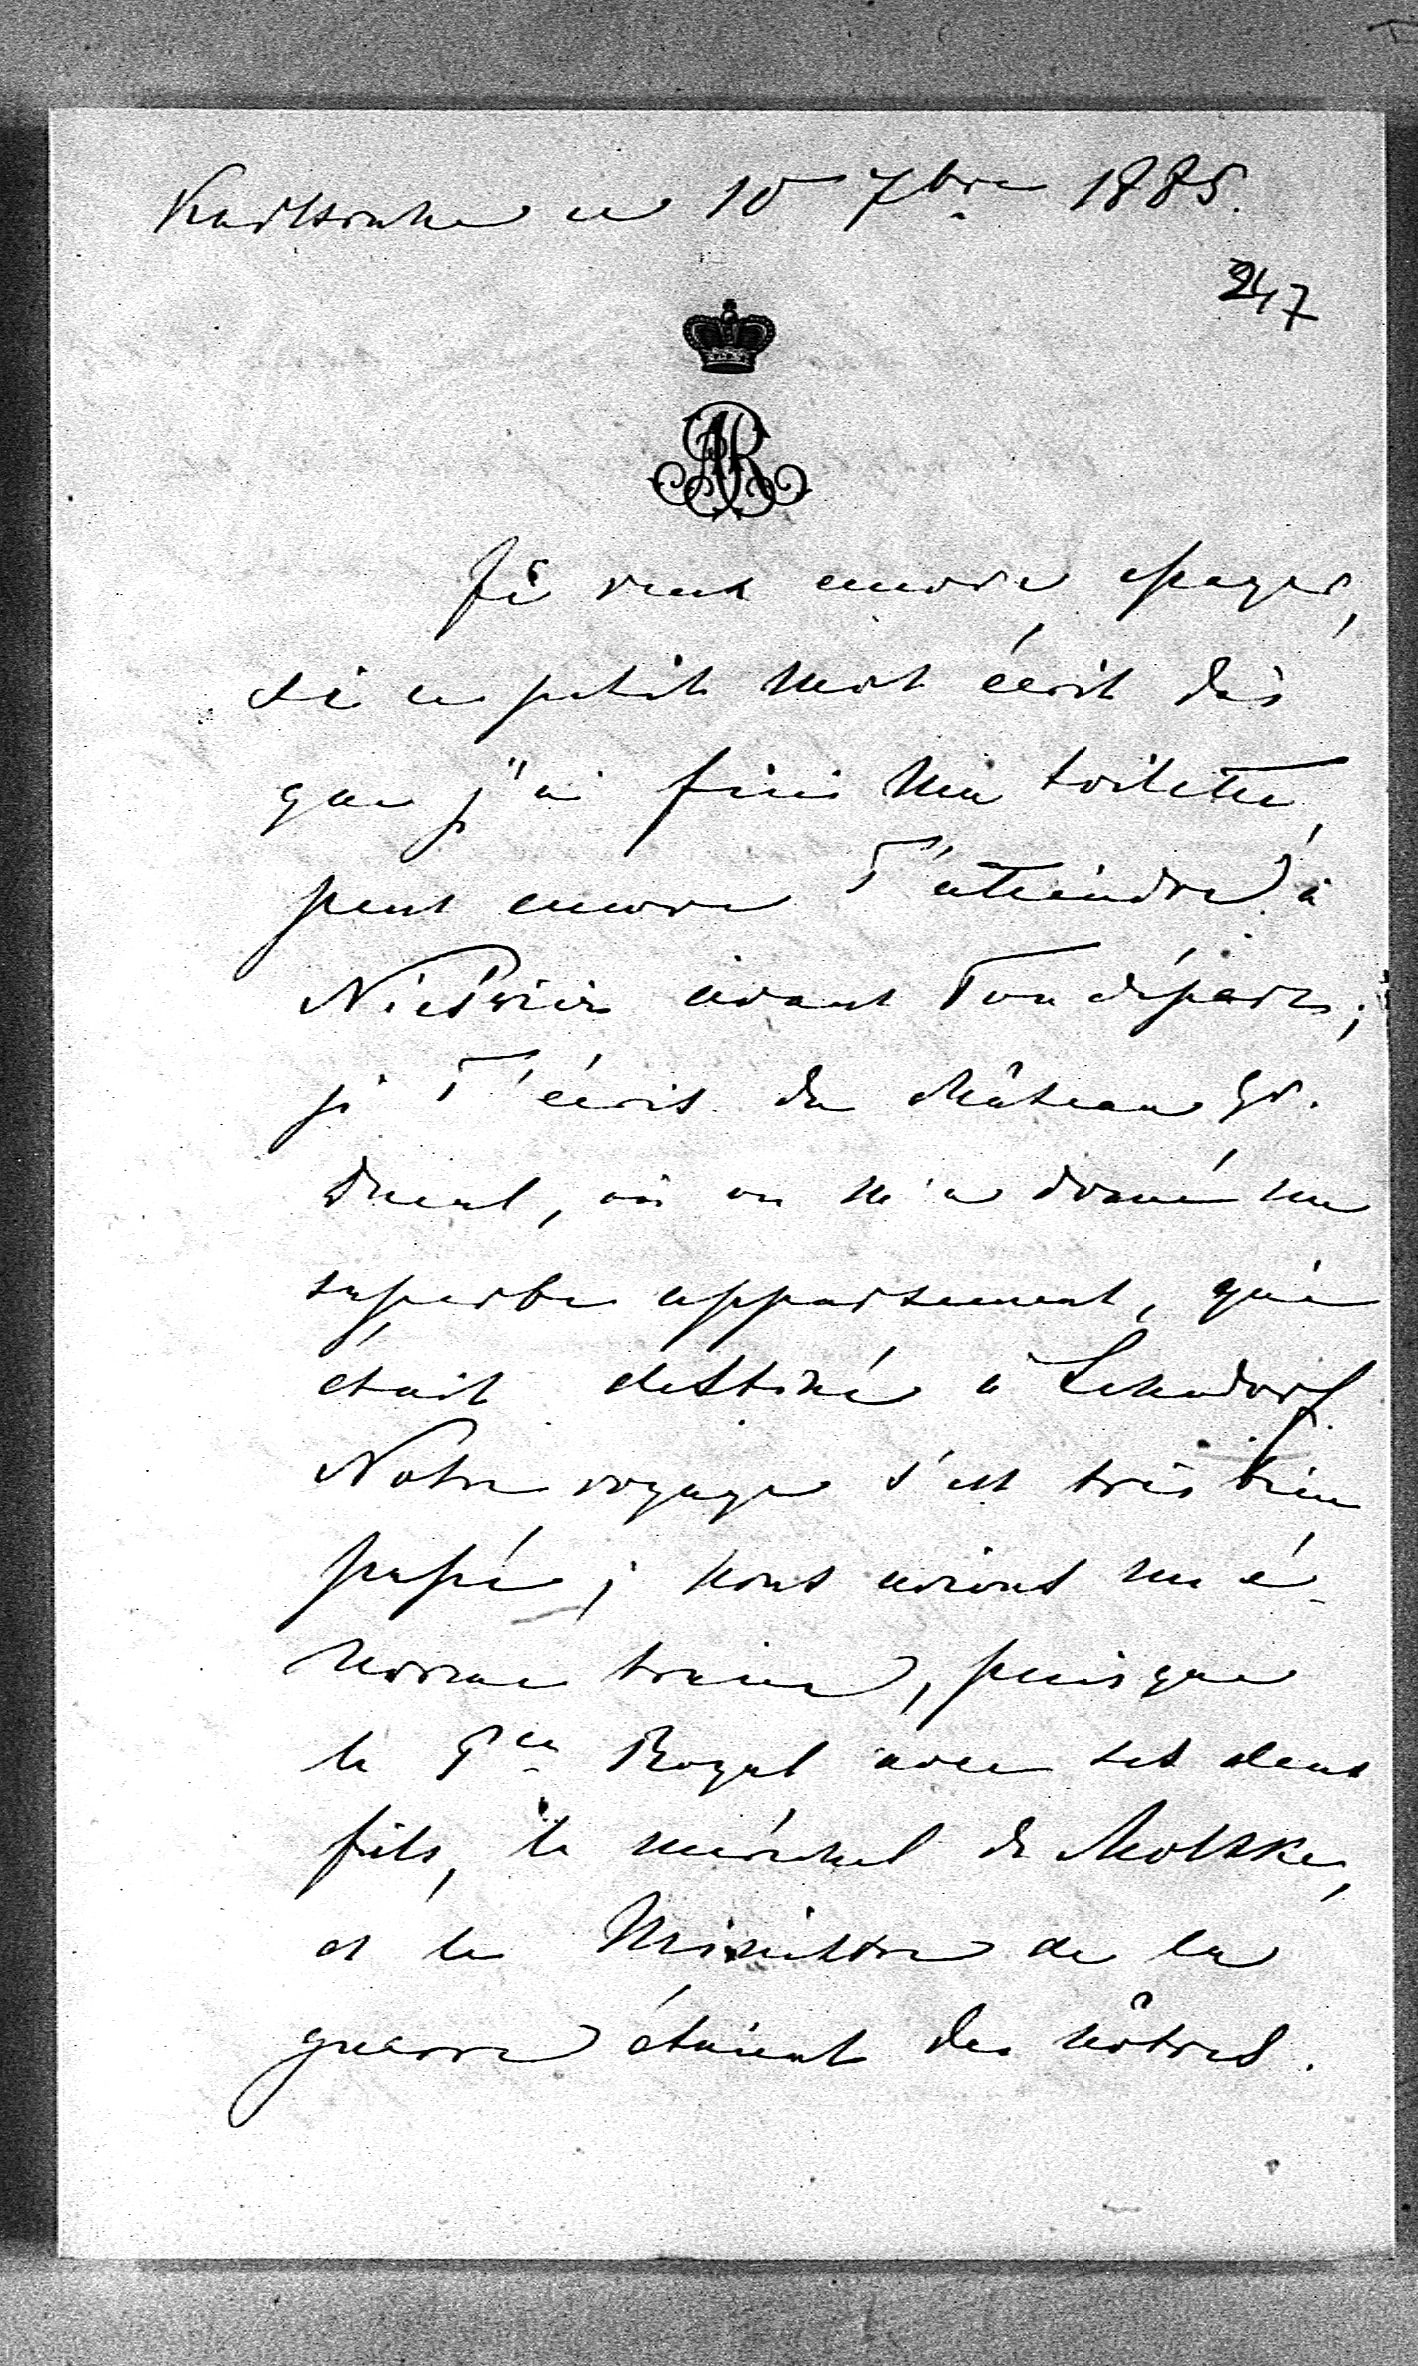 Karlsruhe ce 10 7bre 1885.
247
AR
Je veux encore essayer,
si ce petit mot écrit dès
que j'ai fini ma toilette,
peut encore T'atteindre à
Nieświez avant Ton départ;
je T'écris du château Gd.
Ducal, où on m'a donné un
superbe appartement, qui
était destiné à Lehndorf.
Notre voyage s'est très bien
passé; nous avions un é-
norme train, puisque
le Pce Royal avec ses deux
fils, le maréchal de Moltke,
et le Ministre de la
guerre étaient des nôtres.